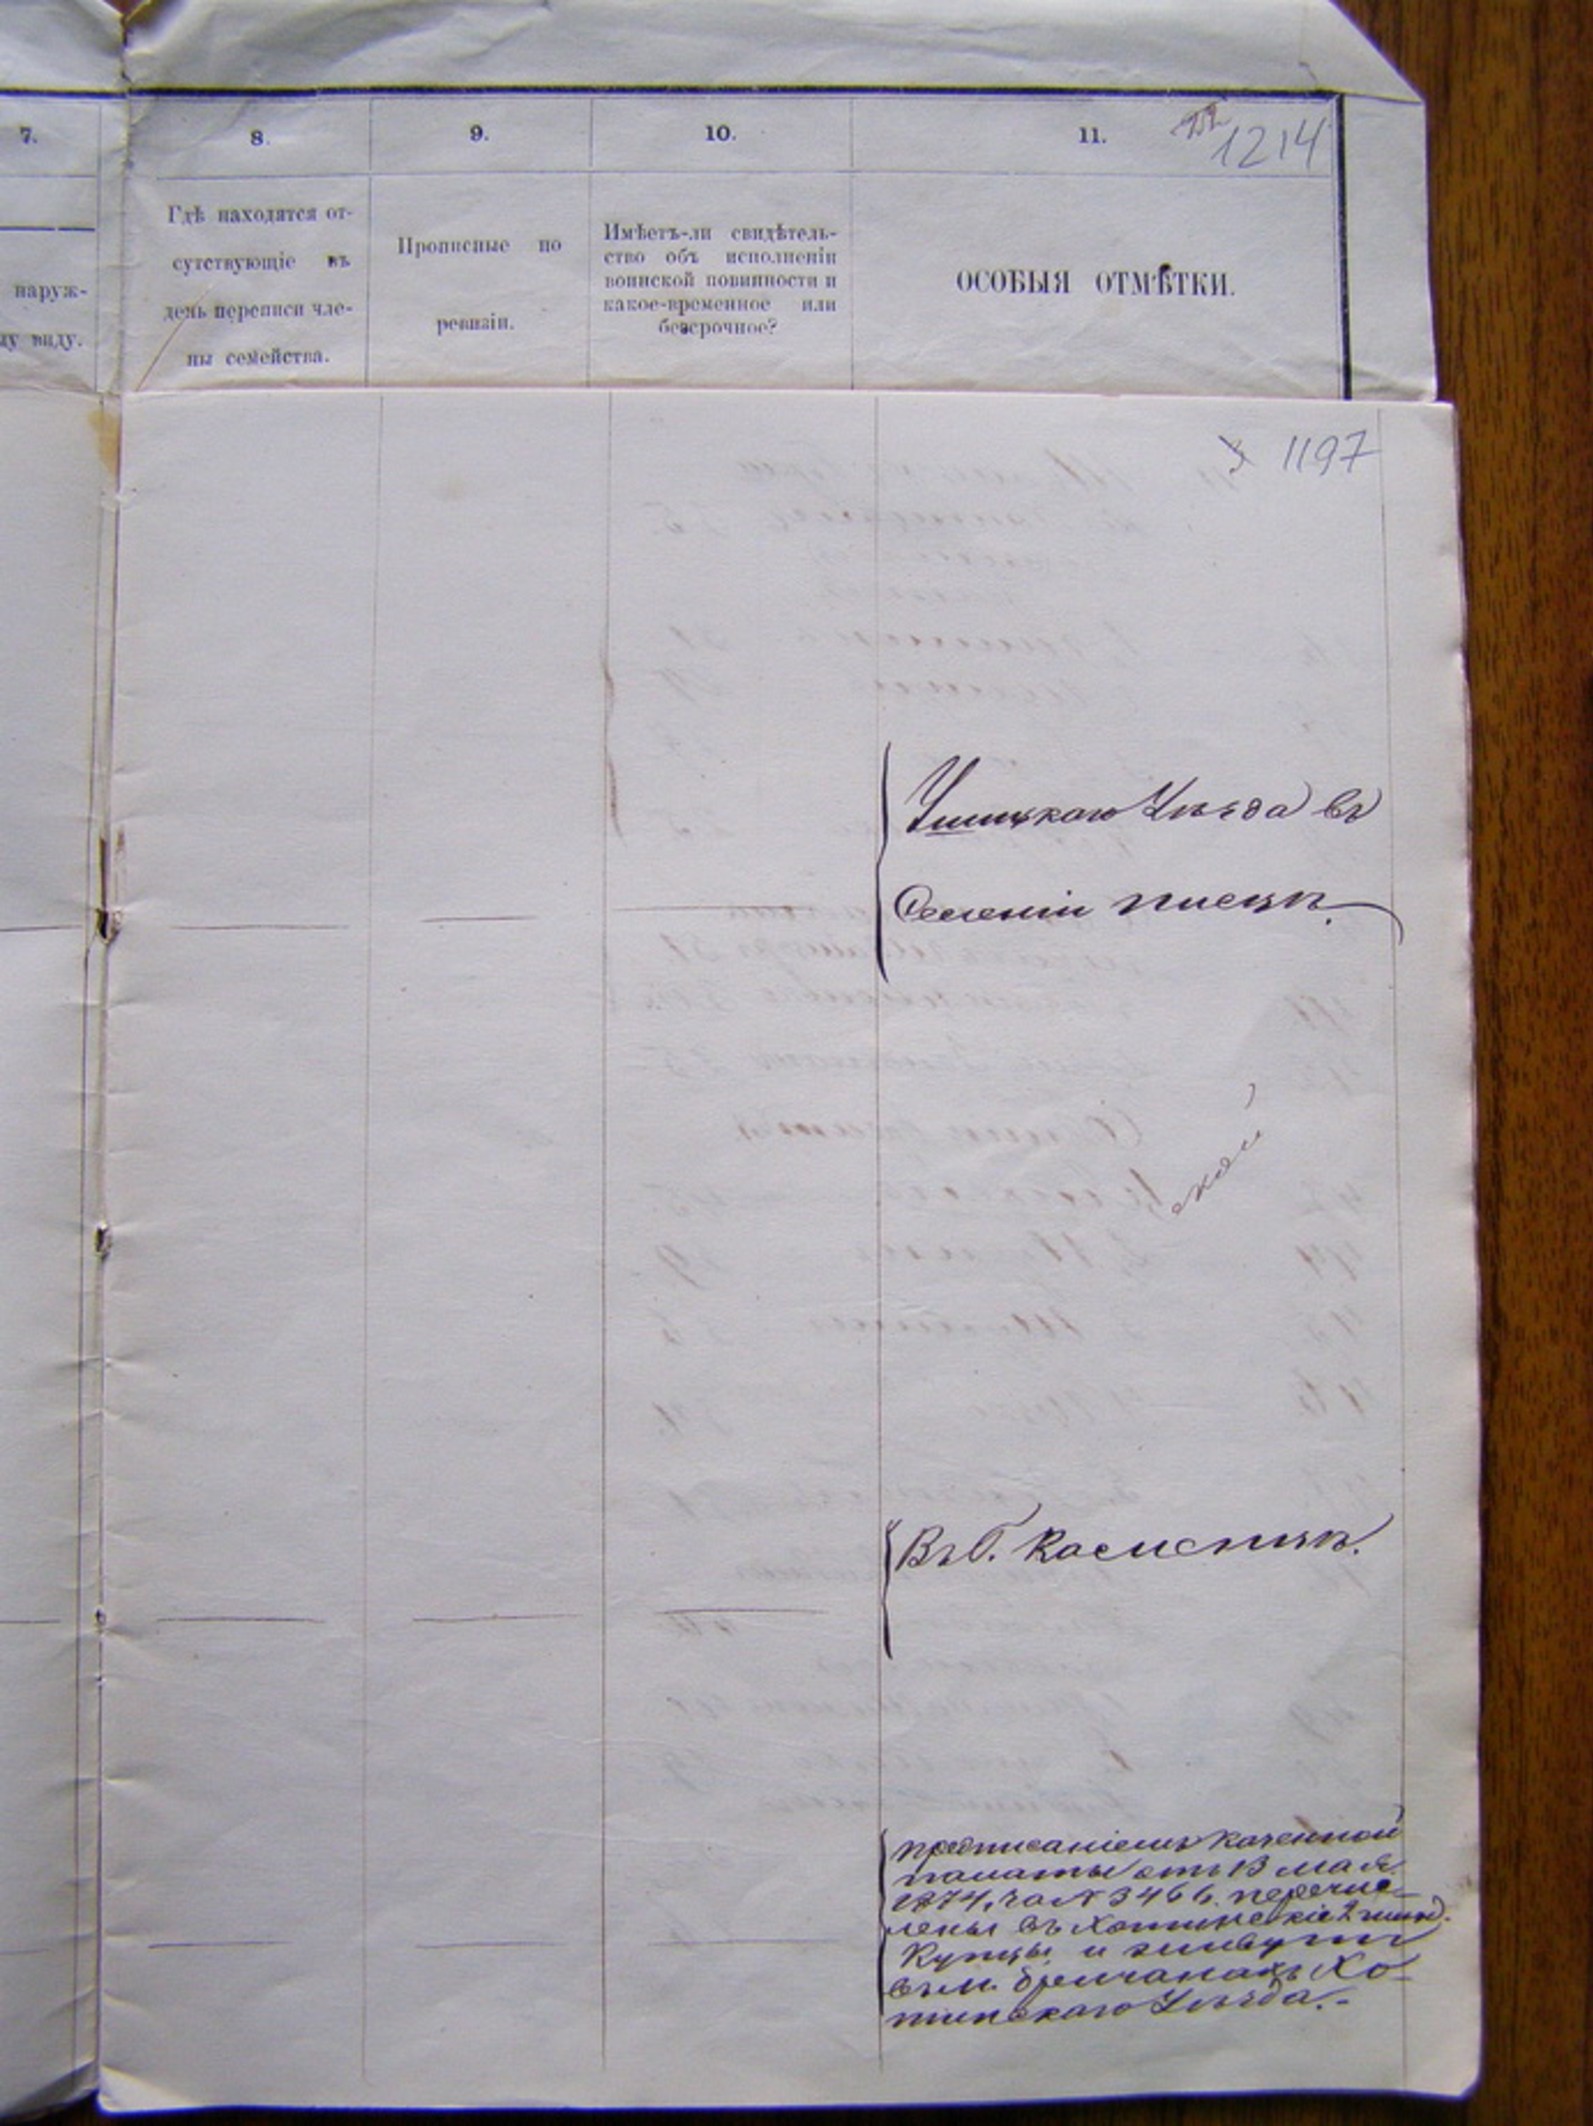 7.
8.
9.
10.
11.
1214
наруж-
му виду.
Гдѣ находятся от-
сутствующіе въ
день переписи чле-
ны семейства.
Прописные по
ревизіи.
Имѣетъ-ли свидѣтель-
ство объ исполненіи
воинской повинности и
какое-временное или
безсрочное?
ОСОБЫЯ ОТМѢТКИ.
1197
Ушицкаго Уѣзда въ
Селеніи
Въ Г. Каменцѣ.
предписаніемъ Казенной
палаты отъ 13 мая
1874, за N 3466. перечис-
лены въ Хотинскіе 2 гильд.
Купцы и живутъ
въ м. Бричанахъ Хо-
тинскаго Уѣзда.-